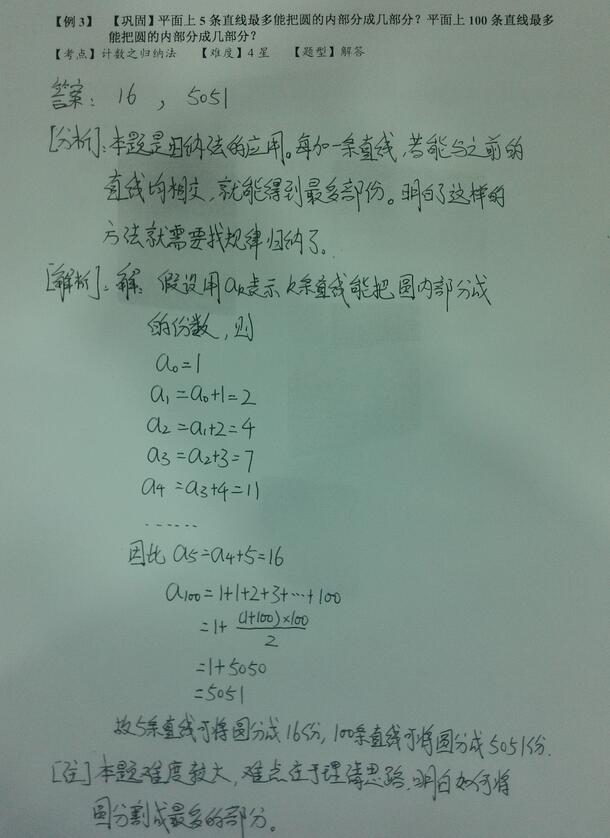 【例3】 【巩固】平面上5条直线最多能把圆的内部分成几部分？平面上100条直线最多
能把圆的内部分成几部分？
【考点】计数之归纳法 【难度】4星 【题型】解答
答案：16，5051
[分析]：本题是归纳法的应用。每加一条直线，若能与之前的
直线均相交，就能得到最多部份。明白了这样的
方法就需要找规律归纳了。
[解析]：解：假设用aₖ表示k条直线能把圆内部分成
的份数，则
a₀=1
a₁=a₀+1=2
a₂=a₁+2=4
a₃=a₂+3=7
a₄=a₃+4=11
······
因此 a₅=a₄+5=16
a₁₀₀=1+1+2+3+···+100
=1+ (1+100)×100/2
=1+5050
=5051
故5条直线可将圆分成16份，100条直线可将圆分成5051份.
[注]本题难度较大，难点在于理清思路，明白如何将
圆分割成最多的部分。